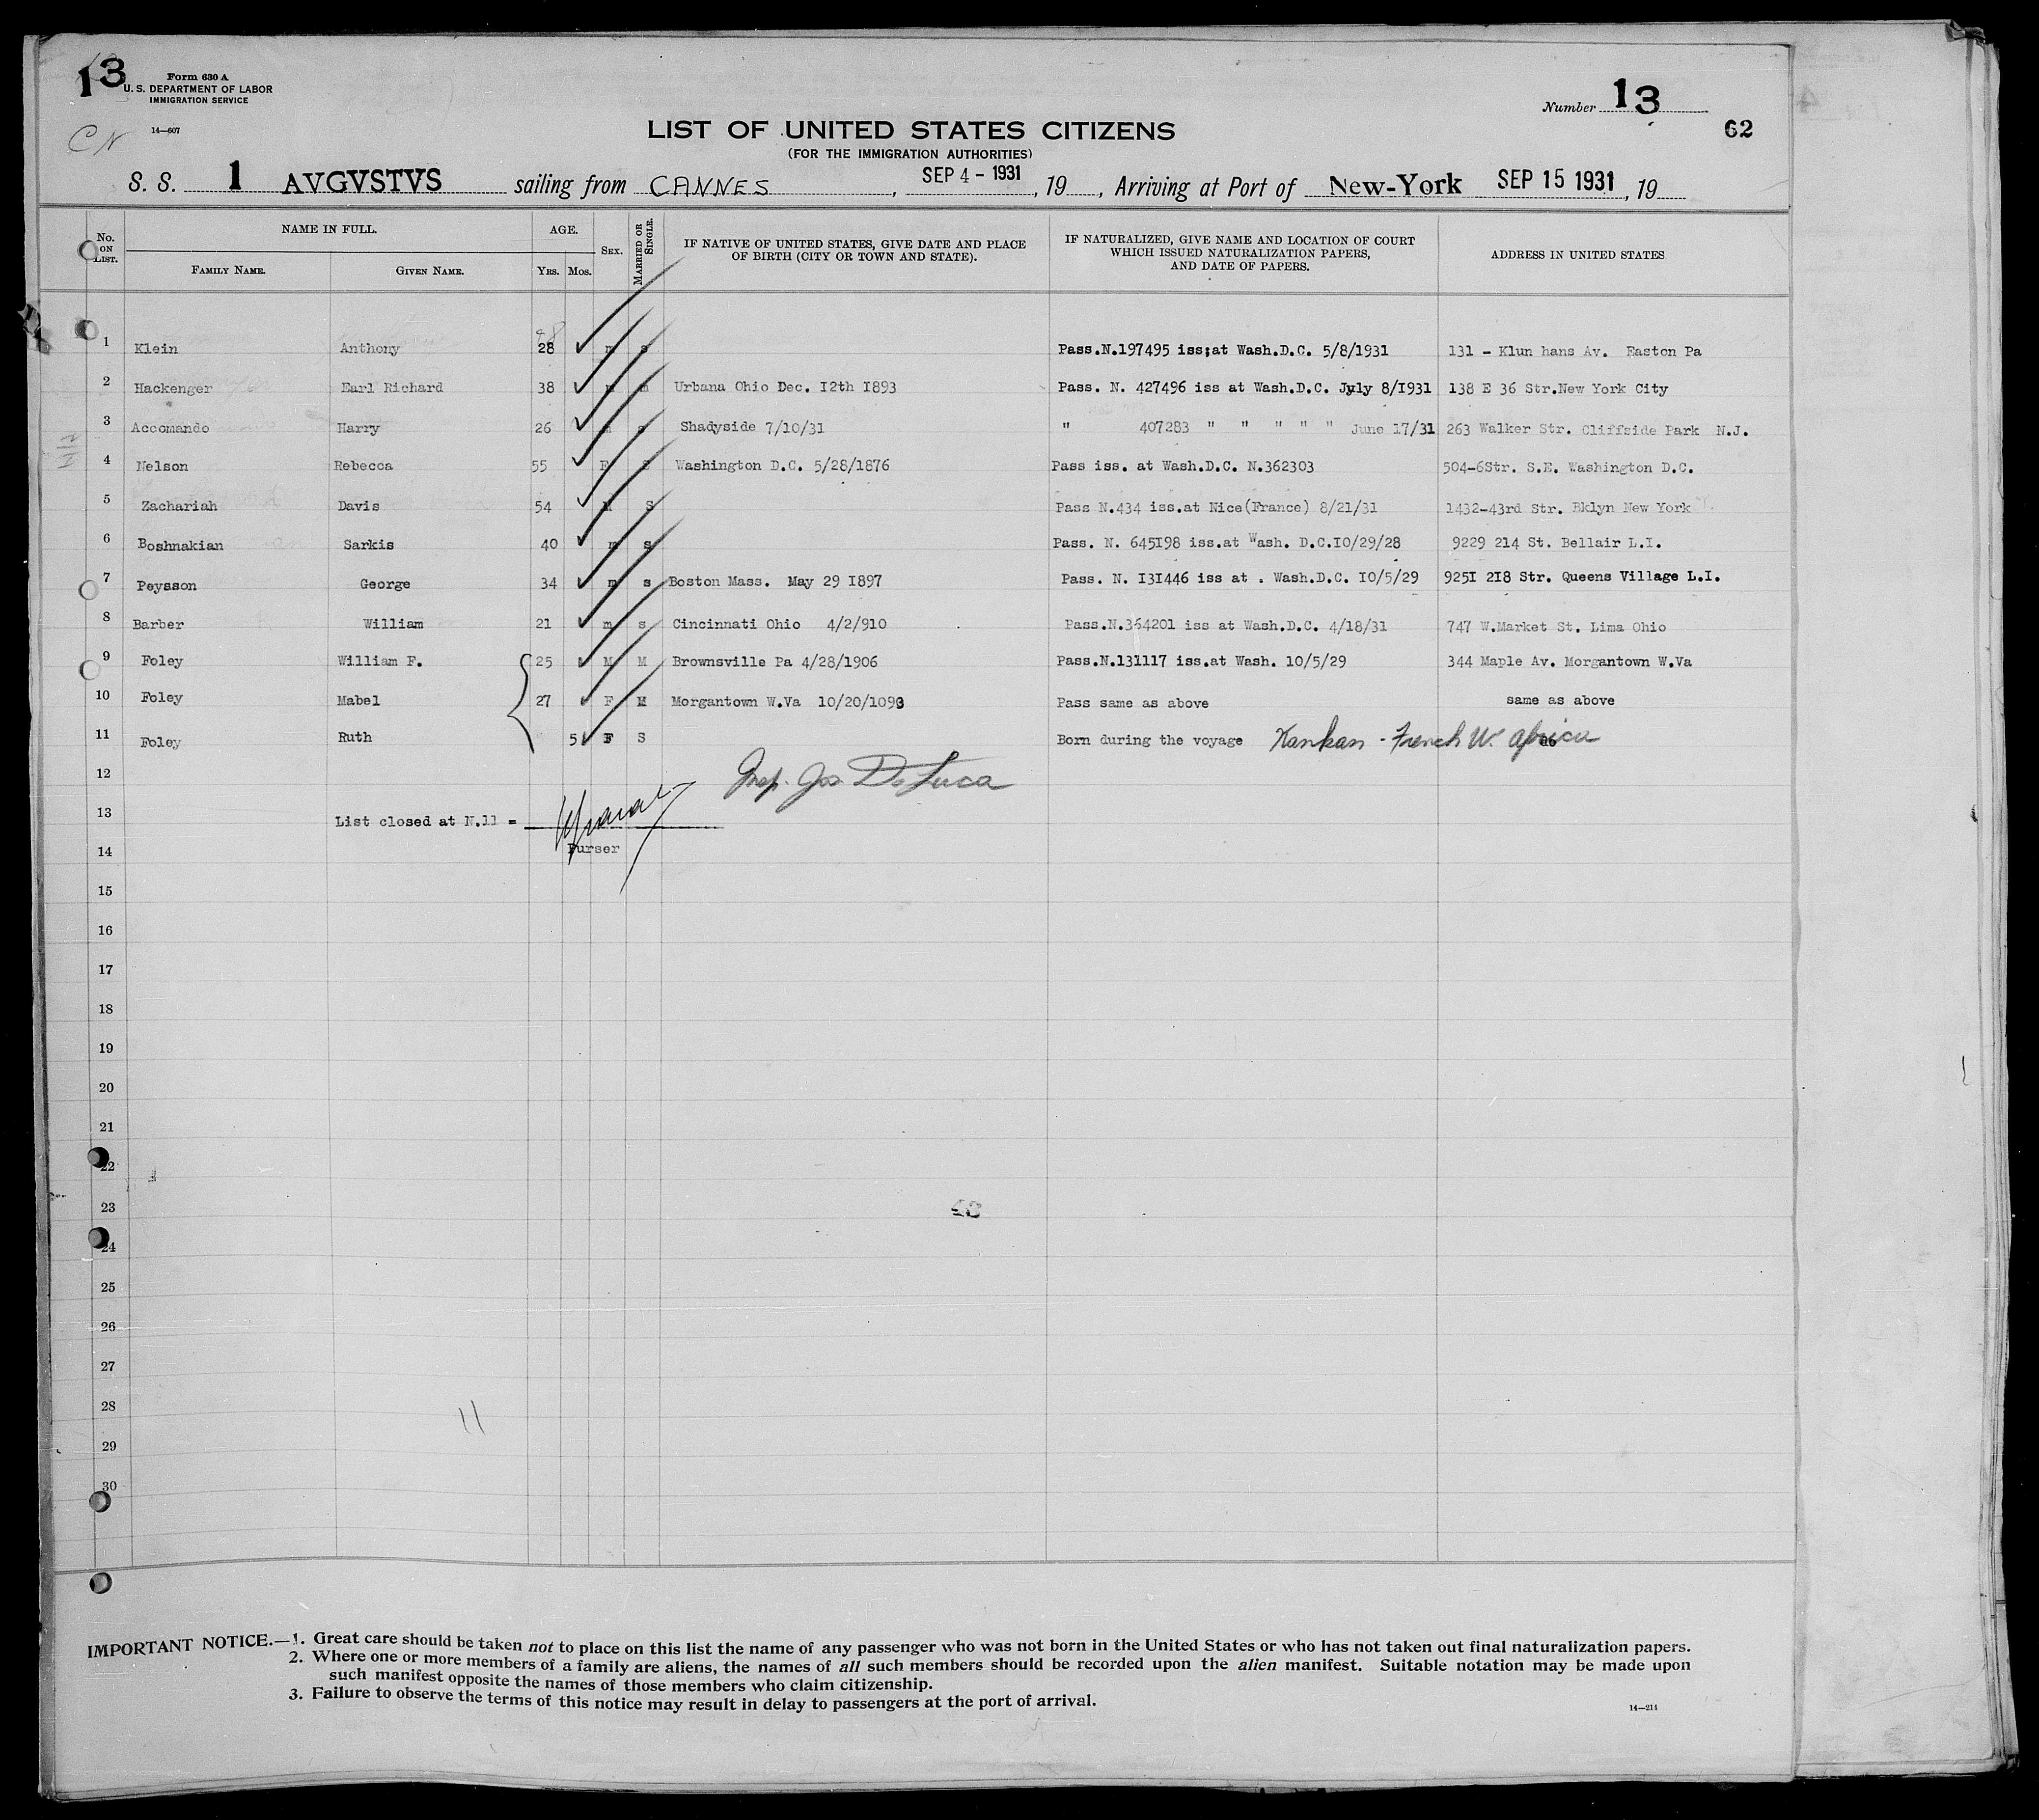 13
Form 630 A
U. S. DEPARTMENT OF LABOR
IMMIGRATION SERVICE
14—607
CN
Number 13
62
LIST OF UNITED STATES CITIZENS
(FOR THE IMMIGRATION AUTHORITIES)
S. S. 1 AVGVSTVS sailing from CANNES, SEP 4 - 1931, 19, Arriving at Port of New-York SEP 15 1931, 19
No. ON LIST. NAME IN FULL. AGE. SEX. MARRIED OR SINGLE. IF NATIVE OF UNITED STATES, GIVE DATE AND PLACE OF BIRTH (CITY OR TOWN AND STATE). IF NATURALIZED, GIVE NAME AND LOCATION OF COURT WHICH ISSUED NATURALIZATION PAPERS, AND DATE OF PAPERS. ADDRESS IN UNITED STATES
FAMILY NAME. GIVEN NAME. YRS. MOS.
1 Klein Anthony 28 m s Pass.N.197495 iss;at Wash.D.C. 5/8/1931 131 - Klun hans Av. Easton Pa
2 Hackenger Earl Richard 38 m m Urbana Ohio Dec. I2th I893 Pass. N. 427496 iss at Wash.D.C. July 8/I931 138 E 36 Str.New York City
3 Accomando Harry 26 M s Shadyside 7/10/31 " 407283 " " " " " June 17/31 263 Walker Str. Cliffside Park N.J.
4 Nelson Rebecca 55 F S Washington D.C. 5/28/1876 Pass iss. at Wash.D.C. N.362303 504-6Str. S.E. Washington D.C.
5 Zachariah Davis 54 M S Pass N.434 iss.at Nice(France) 8/21/31 1432-43rd Str. Bklyn New York
6 Boshnakian Sarkis 40 m s Pass. N. 645I98 iss.at Wash. D.C.I0/29/28 9229 214 St. Bellair L.I.
7 Peysson George 34 m s Boston Mass. May 29 I897 Pass. N. I3I446 iss at . Wash.D.C. I0/5/29 925I 2I8 Str. Queens Village L.I.
8 Barber William 21 m s Cincinnati Ohio 4/2/910 Pass.N.364201 iss at Wash.D.C. 4/18/31 747 W.Market St. Lima Ohio
9 Foley William F. 25 M M Brownsville Pa 4/28/1906 Pass.N.131117 iss.at Wash. 10/5/29 344 Maple Av. Morgantown W.Va
10 Foley Mabel 27 F M Morgantown W.Va 10/20/1093 Pass same as above same as above
11 Foley Ruth 5 F S Born during the voyage Kankan - French W. Africa
12 Insp. Jos De Luca
13 List closed at N.11 =
14 Purser
15
16
17
18
19
20
21
22
23
24
25
26
27
28
29
30
11
IMPORTANT NOTICE.—1. Great care should be taken not to place on this list the name of any passenger who was not born in the United States or who has not taken out final naturalization papers.
2. Where one or more members of a family are aliens, the names of all such members should be recorded upon the alien manifest. Suitable notation may be made upon
such manifest opposite the names of those members who claim citizenship.
3. Failure to observe the terms of this notice may result in delay to passengers at the port of arrival.
14—214